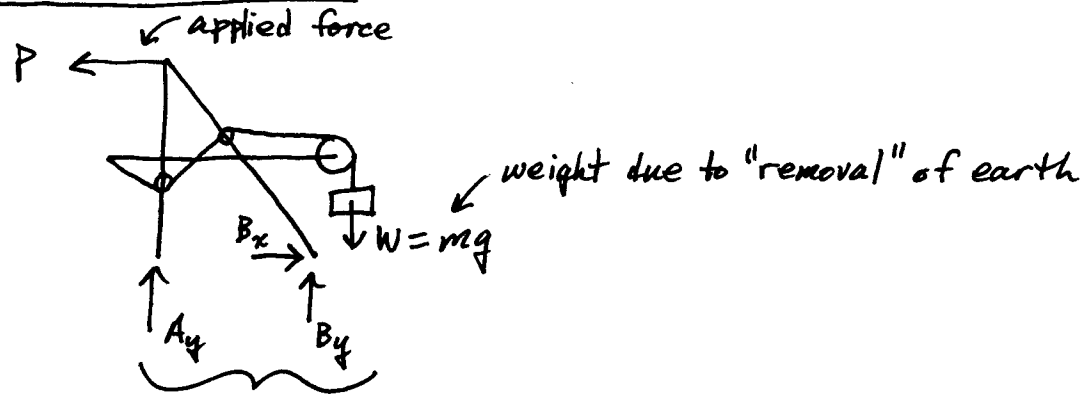 applied force
P
weight due to "removal" of earth
Bx
W = mg
Ay
By